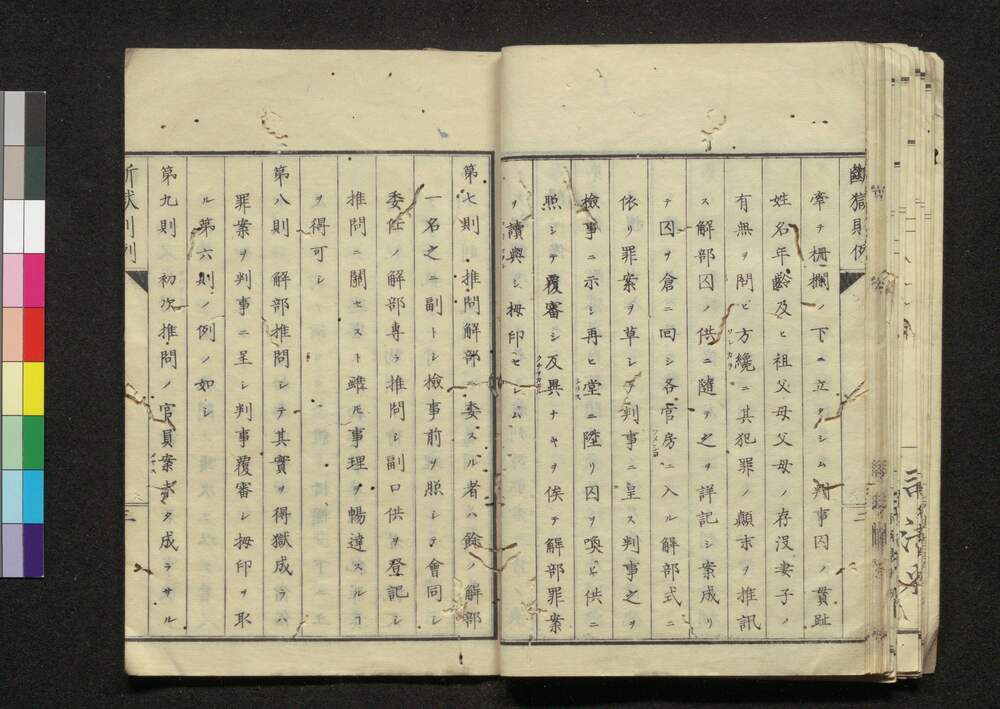 斷獄則例
牽テ柵欄ノ下ニ立タシム判事囚ノ貫趾
姓名年齡及ヒ祖父母父母ノ存沒妻子ノ
有無ヲ問ヒ方纔ニ其犯罪ノ顛末ヲ推訊
ス解部囚ノ供ニ隨テ之ヲ詳記シ案成リ
テ囚ヲ倉ニ回シ各官房ニ入ル解部式ニ
依リ罪案ヲ草シテ判事ニ呈ス判事之ヲ
檢事ニ示シ再ヒ堂ニ陞リ囚ヲ喚ヒ供ニ
照シテ覆審シ反異ナキヲ俟テ解部罪案
ヲ讀與シ拇印セシム
第七則 推問解部ニ委スル者ハ餘ノ解部
一名之ニ副トシ檢事前ヲ照シテ會同シ
委任ノ解部專ラ推問シ副口供ヲ登記シ
推問ニ關セスト雖モ事理ヲ暢達スルヿ
ヲ得可シ
第八則 解部推問シテ其實ヲ得獄成ル者ハ
罪案ヲ判事ニ呈シ判事覆審シ拇印ヲ取
ル第六則ノ例ノ如シ
第九則 初次推問ノ官員案未タ成ラサル
斷獄則例